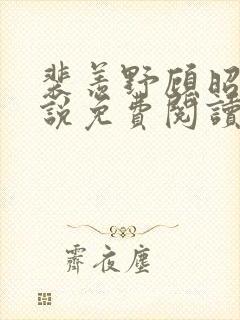 裴羨野顧昭
說免費閱讀
霽夜塵